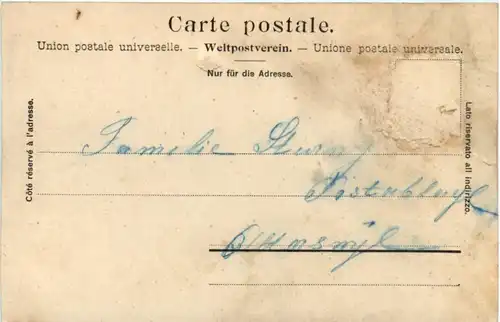 Carte postale.
Union postale universelle. — Weltpostverein. — Unione postale universale.
Nur für die Adresse.
Côté réservé à l'adresse.
Lato riservato all indirizzo.
Familie